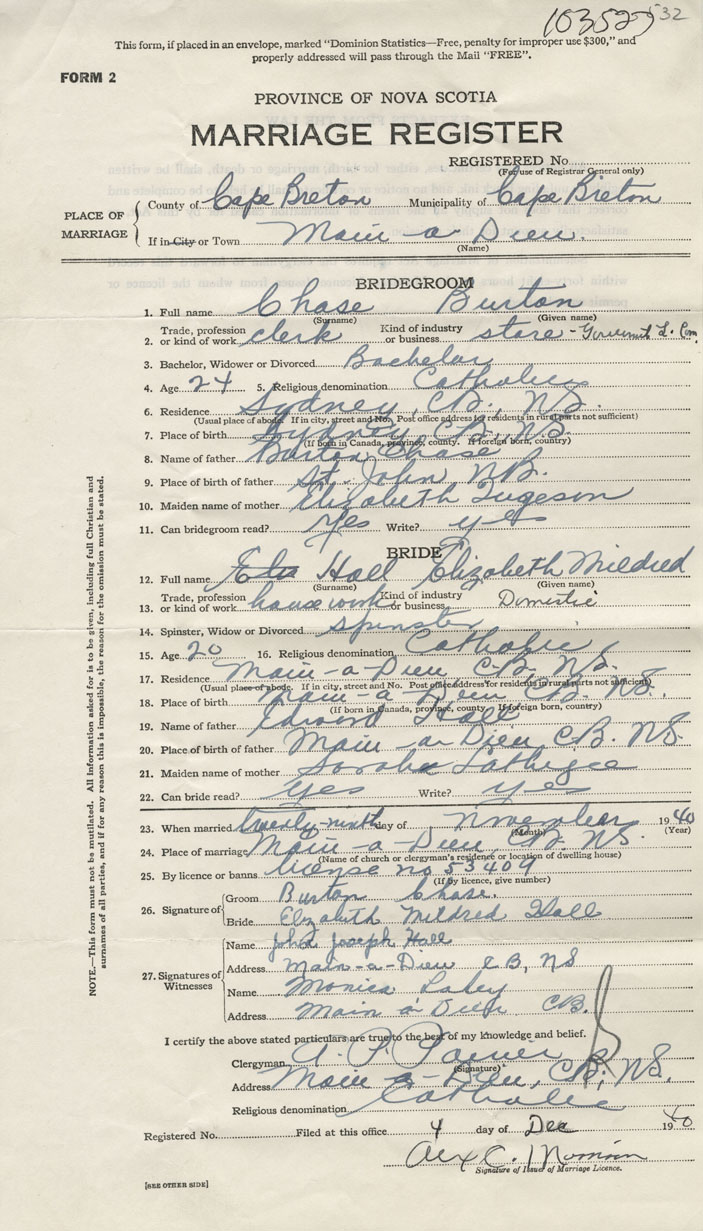 103529 532
This form, if placed in an envelope, marked "Dominion Statistics—Free, penalty for improper use $300," and
properly addressed will pass through the Mail "FREE".
FORM 2
PROVINCE OF NOVA SCOTIA
MARRIAGE REGISTER
REGISTERED No.
(For use of Registrar General only)
PLACE OF MARRIAGE
County of Cape Breton Municipality of Cape Breton
If in City or Town Main-a-Dieu.
(Name)
BRIDEGROOM
1. Full name Chase Burton
(Surname) (Given name)
2. Trade, profession or kind of work clerk Kind of industry or business store - Governmt L. Com
3. Bachelor, Widower or Divorced Bachelor
4. Age 24 5. Religious denomination Catholic
6. Residence Sydney, C.B., N.S.
(Usual place of abode. If in city, street and No. Post office address for residents in rural parts not sufficient)
7. Place of birth Sydney, C.B., N.S.
(If born in Canada, province, county. If foreign born, country)
8. Name of father Burton Chase
9. Place of birth of father St. John N.B.
10. Maiden name of mother Elizabeth
11. Can bridegroom read? Yes Write? yes
BRIDE
12. Full name Hall Elizabeth Mildred
(Surname) (Given name)
13. Trade, profession or kind of work housework Kind of industry or business Domestic
14. Spinster, Widow or Divorced spinster
15. Age 20 16. Religious denomination Catholic
17. Residence Main-a-Dieu, C.B. N.S.
(Usual place of abode. If in city, street and No. Post office address for residents in rural parts not sufficient)
18. Place of birth Main-a Dieu C.B. N.S.
(If born in Canada, province, county. If foreign born, country)
19. Name of father Edward Hall
20. Place of birth of father Main-a-Dieu C.B. N.S.
21. Maiden name of mother Sarah
22. Can bride read? yes Write? yes
23. When married twenty-ninth day of November 1940
(Month) (Year)
24. Place of marriage Main-a-Dieu, C.B. N.S.
(Name of church or clergyman's residence or location of dwelling house)
25. By licence or banns license no 53409
(If by licence, give number)
26. Signature of
Groom Burton Chase.
Bride Elizabeth Mildred Hall
27. Signatures of Witnesses
Name John Joseph Hall
Address Main-a-Dieu C.B, NS
Name Monica Lahey
Address Main a Dieu CB.
I certify the above stated particulars are true to the best of my knowledge and belief.
Clergyman A. P. Poirier
(Signature)
Address Main-a-Dieu, C.B, N.S.
Religious denomination Catholic
Registered No. Filed at this office 4 day of Dec 1940
Alex C.
Signature of Issuer of Marriage Licence.
[SEE OTHER SIDE]
NOTE.—This form must not be mutilated. All information asked for is to be given, including full Christian and
surnames of all parties, and if for any reason this is impossible, the reason for the omission must be stated.